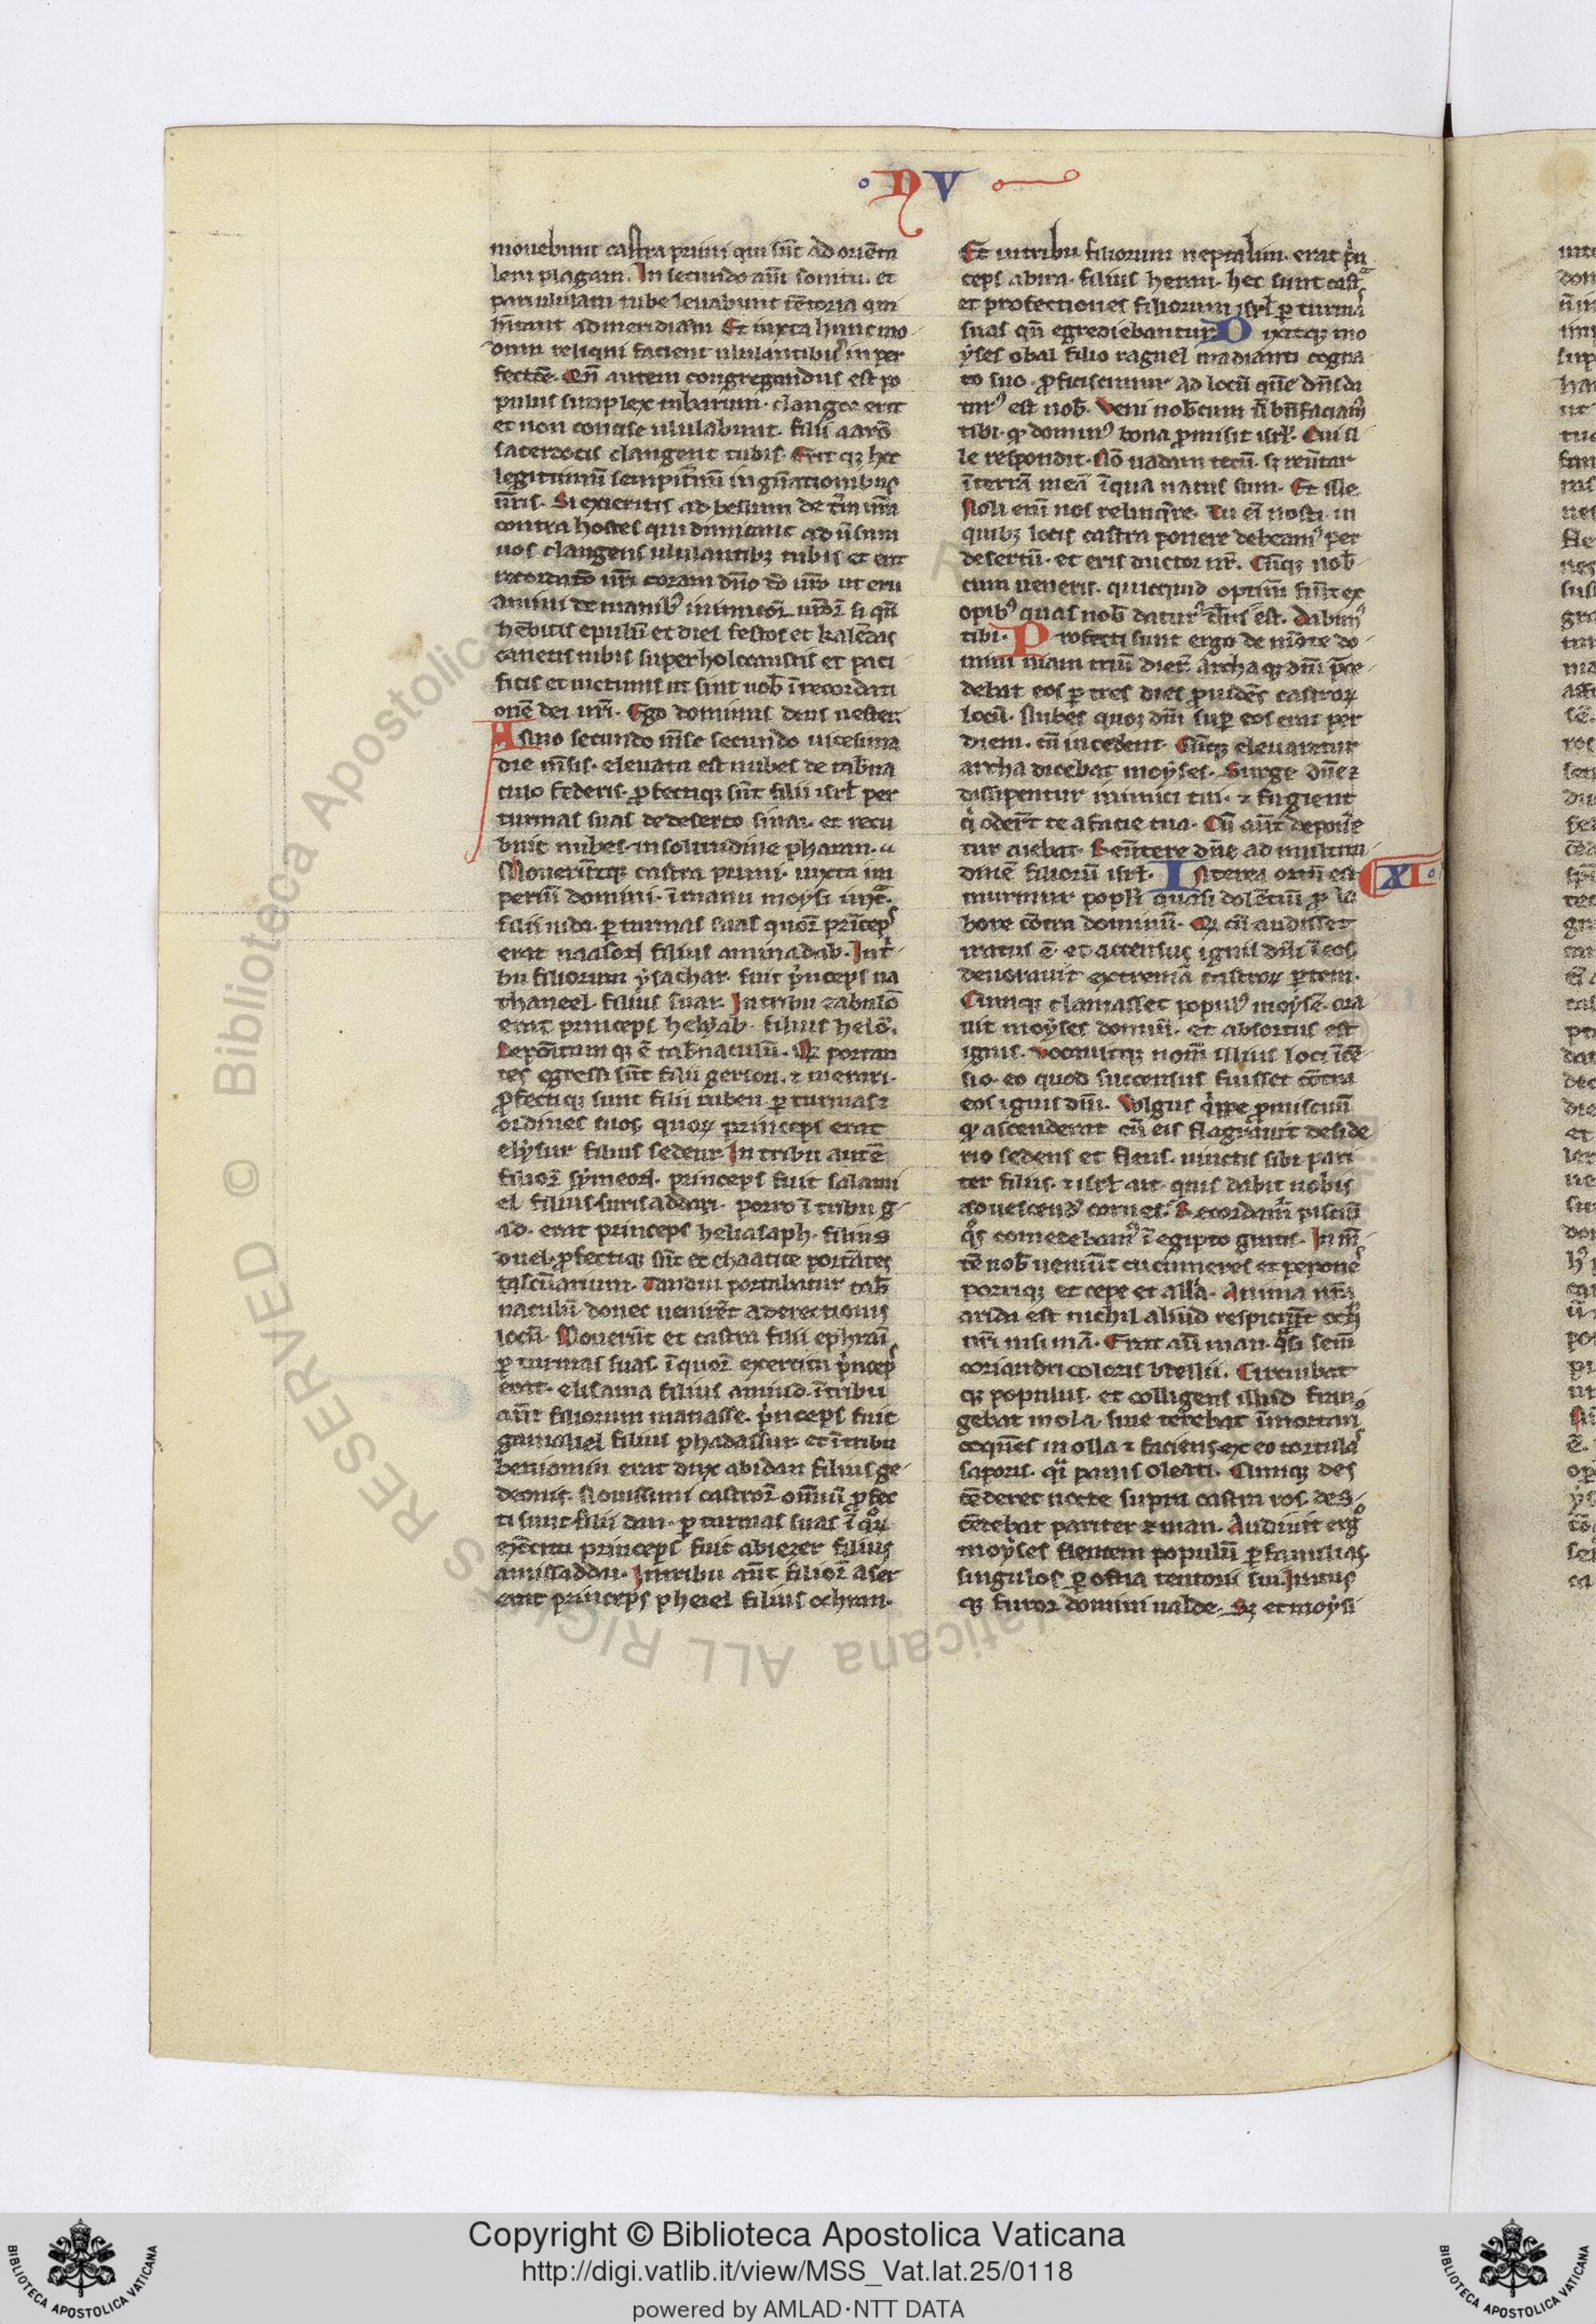 · N V
mouebunt castra primi qui sūt ad oriēta
lem plagam. In secundo aūt sonitu. et
pari ululatu tube leuabunt tētoria qui
hītant ad meridiam Et iuxta hunc mo
dum reliqui facient ululantibus in per
fectōe. Qn̄ autem congregandus est po
pulus simplex tubarum. clangor erit
et non concise ululabunt. filii aarō
sacerdotis clangent tubis. Erit qȝ hec
legitimū sempit̄nū in gn̄ationibus
ūris. Si exieritis ad bellum de t̄ra ūra
contra hostes qui dimicant aduersum
uos clangens ululantibȝ tubis et erit
recordatō ūri coram dn̄o dō ūro ut eru
amini de manibȝ inimicoꝝ ūroꝝ si qn̄
hēbitis epulū et dies festos et kalēdas
canetis tubis super holocaustis et paci
ficis et uictimis ut sint uob̄ ī recordati
onē dei ūri. Ego dominus deus uester.
Anno secundo mēse secundo uicesima
die mēsis. eleuata est nubes de tab̄na
culo federis. ꝓfectiqȝ sūt filii isrl̄ per
turmas suas de deserto sinai. et recu
buit nubes. in solitudine pharan.
Mouerūtqȝ castra primi. iuxta im
periū domini. ī manu moysi
filii iuda. ꝑ turmas suas quoꝝ prīcepˢ
erat naason filius aminadab. In tⁱ
bu filiorum ysachar. fuit pⁱnceps na
thaneel. filius suar. In tribu zabulō
erat princeps helyab. filius helō.
Depōitum qȝ ē tab̄naculū. Qȝ portan
tes egressi sūt filii gerson. ⁊ merari.
ꝓfecti qȝ sunt filii ruben ꝑ turmas ⁊
ordines suos. quoꝝ princeps erat
elysur filius sedeur. In tribu autē
filioꝝ symeon. princeps fuit salami
el filius surisaddai. porro ī tribu g
ad. erat princeps heliasaph. filius
duel. ꝓfectique sūt et chaatite portātes
sāctuarium. Tandiu portabatur tab̄
naculū. donec uenirēt ad erectionis
locū. Mouerūt et castra filii ephraī
ꝑ turmas suas. ī quoꝝ exercitu pⁱncepˢ
erat. elisama filius amiud. ī tribu
aūt filiorum manasse. pⁱnceps fuit
gamaliel filius phadassur. et ī tribu
beniamin erat dux abidan filius ge
deonis. Nouissimi castroꝝ omniū ꝓfec
ti sunt filii dan. ꝑ turmas suas ī quoꝝ
exercitu princeps fuit abiezer filius
amissaddai. In tribu aūt filioꝝ aser
erat princeps phegiel filius ochran.
Et in tribu filiorum neptalim. erat pⁱn
ceps ahira. filius henan. hec sunt castᵃ
et profectiones filiorum isrl̄ ꝑ turmas
suas qn̄ egrediebantur. Dixitqȝ mo
yses obab filio raguel madianiti cogna
to suo. ꝓficiscimur ad locū quē dn̄s da
turꝰ est nob̄. Veni nobcum ut bn̄faciamꝰ
tibi. qꝫ dominꝰ bona ꝓmisit isrl̄. Cui il
le respondit. Nō uadam tecū. sȝ reūtar
ī terrā meā ī qua natus sum. Et ille
Noli enī nos relinqⁱre. Tu enī nosti. in
quibȝ locis castra ponere debeamꝰ per
desertū. et eris ductor nr̄. Cūqȝ nob̄
cum ueneris. quicquid optimū fuerit ex
opibꝰ quas nob̄ daturꝰ dn̄s est. dabimꝰ
tibi. Profecti sunt ergo de mōte do
mini uiam triū dieꝝ. Archa qȝ dn̄i p̄ce
debat eos ꝑ tres dies ꝓuidēs castroꝝ
locū. Nubes quoȝ dn̄i suꝑ eos erat per
diem. cū incederent. Cūqȝ eleuaretur
archa dicebat moyses. Surge dn̄e ⁊
dissipentur inimici tui. ⁊ fugient
qⁱ oder̄t te a facie tua. Cū aūt deponē
tur aiebat. Reūtere dn̄e ad multitu
dinē filiorū isrl̄. Interea ortū est XI·
murmur popli quasi dolētiū ꝓ la
bore cōtra dominū. Qȝ cū audisset
iratus ē. et accensus ignis dn̄i ī eos
deuorauit extremā castroꝝ ꝑtem.
Cumqȝ clamasset populꝰ moysē. ora
uit moyses dominū. et absortus est
ignis. Vocauitqȝ nom̄ illius loci īcē
sio. eo quod succensus fuisset cōtra
eos ignis dn̄i. Wlgus qⁱppe ꝓmiscuū
qꝫ ascenderat cū eis flagrauit deside
rio sedens et flens. iunctis sibi pari
ter filiis. isrl̄ ait. quis dabit nobis
ad uescendū carnes. Recordam̄ pisciū
qᵒs comedebamꝰ ī egipto gratis. In mē
tē nob̄ ueniūt cucumeres et peponeˢ
porriqȝ et cepe et allia. Anima nr̄a
arida est nichil aliud respiciūt oc̄li
nr̄i nisi mā. Erat aūt man. qᵃsi semē
coriandri coloris btellii. Circuibat
qȝ populus. et colligens illud fran
gebat mola. siue terebat ī mortario
coquēs in olla ⁊ faciens ex eo tortulas
saporis. qⁱi panis oleati. Cumqȝ des
cēderet nocte supra castra ros. des
cēdebat pariter ⁊ man. Audiuit ergᵒ
moyses flentem populū ꝑ familias.
singulos ꝑ ostia tentorii sui. Iratus
qȝ furor domini ualde. Sȝ et moysi
© Biblioteca Apostolica Vaticana ALL RIGHTS RESERVED
Copyright © Biblioteca Apostolica Vaticana
http://digi.vatlib.it/view/MSS_Vat.lat.25/0118
powered by AMLAD·NTT DATA
BIBLIOTECA APOSTOLICA VATICANA
BIBLIOTECA APOSTOLICA VATICANA